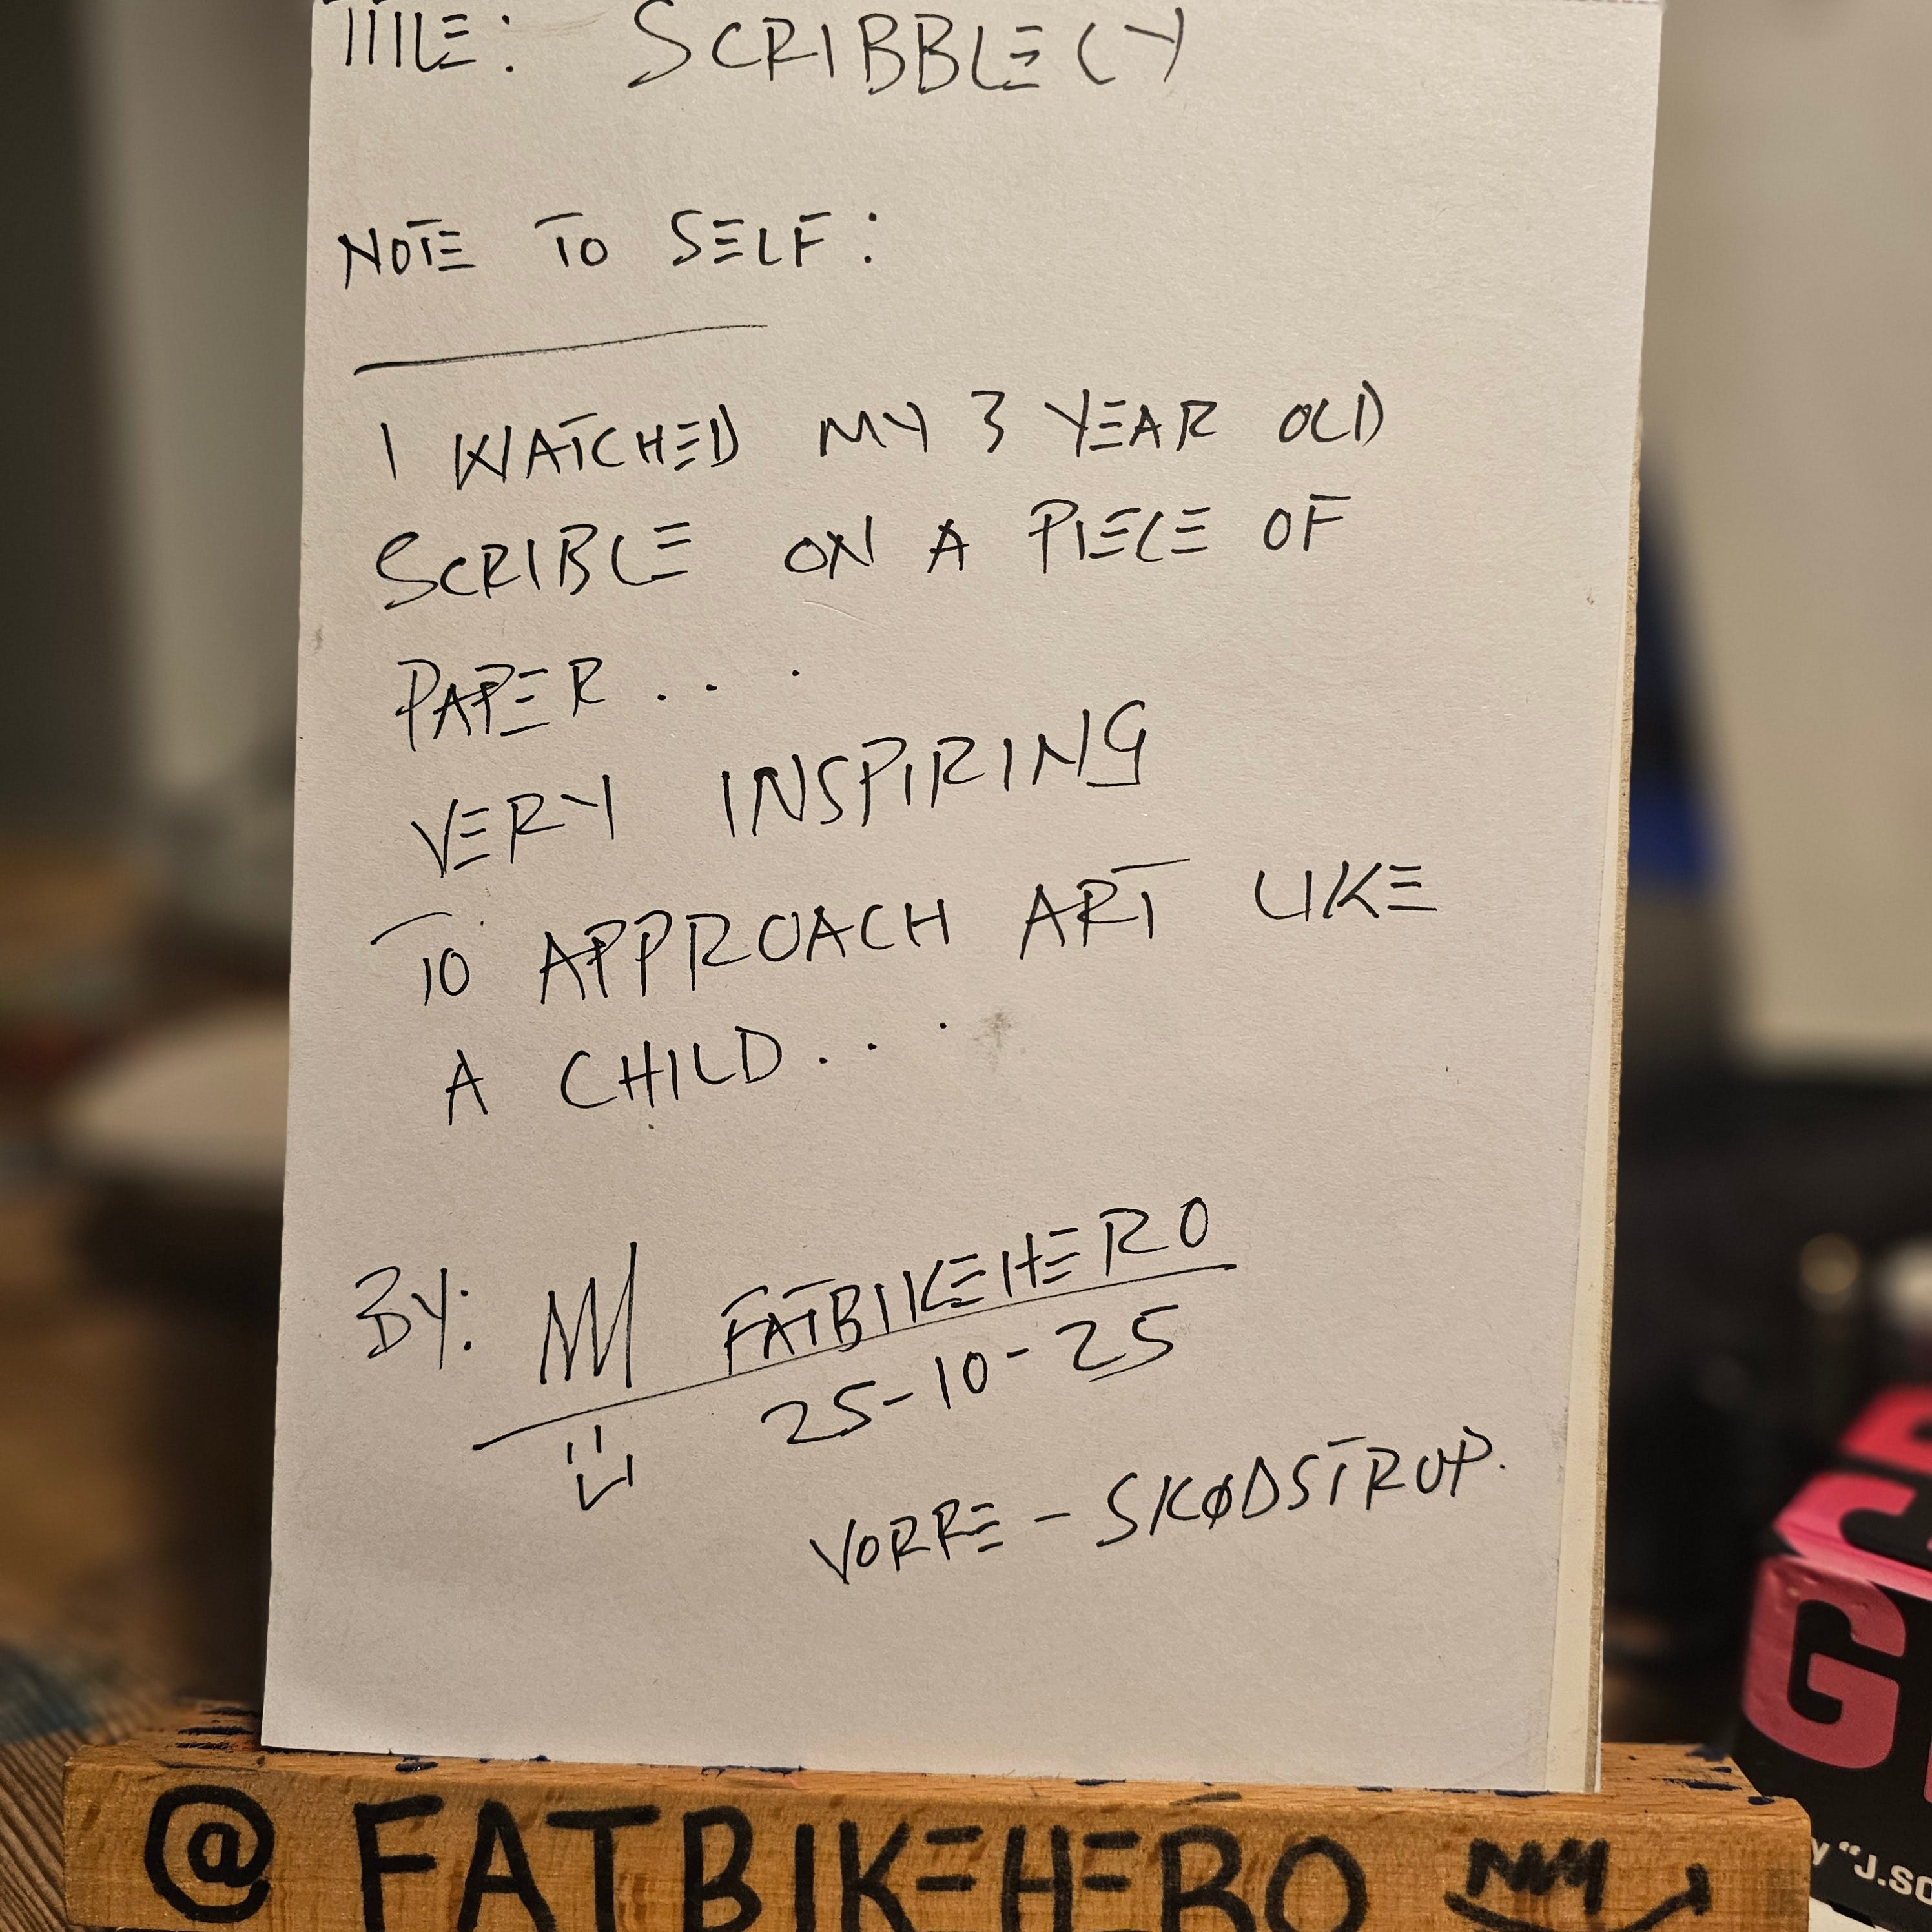 TITLE: SCRIBBLE(Y
NOTE TO SELF:
I WATCHED MY 3 YEAR OLD
SCRIBLE ON A PIECE OF
PAPER...
VERY INSPIRING
TO APPROACH ART LIKE
A CHILD...
BY: NM FATBIKEHERO
25-10-25
VORRE - SKØDSTRUP.
@FATBIKEHERO NM
G
y "J.SC